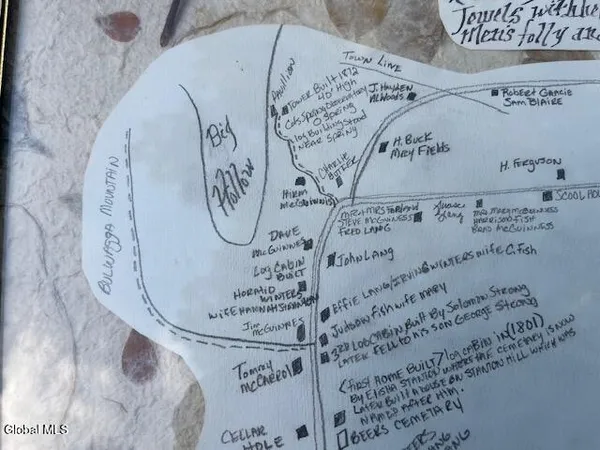 Towels with he
Men's folly an
Town Line
Pavilion
Tower Built 1872
40' High
Cots Spring Observatory
O Spring
Log Building Stood
Near Spring
J. Hayden
McWoods
Robert Gracie
Sam Blaire
H. Buck
Mary Fields
H. Ferguson
Big
Hollow
Charlie
Butler
Hiram
McGuinnis
SCOOL HOU
Mr & Mrs Farland
Steve McGuinness
Fred Lang
Mrs. Mary McGuinness
Harrison Fish
Brad McGuinness
BULWAGGA MOUNTAIN
DAVE
McGuinness
Log Cabin
Built
Horatio
Winters
Wife Hannah
John Lang
Effie Lang/Irving Winters wife C. Fish
Judson Fish wife Mary
Jim
McGuinnes
3RD LOG CABIN Built By Solomon Strong
Later Fell to his son George Strong
Tommy
McCarrol
(First Home Built) log cabin in (1801)
By Elisha Stanton where the cemetary is now
Later built a house on Stanton Hill which was
Named After Him.
BEERS CEMETARY
CELLAR
HOLE
Global MLS